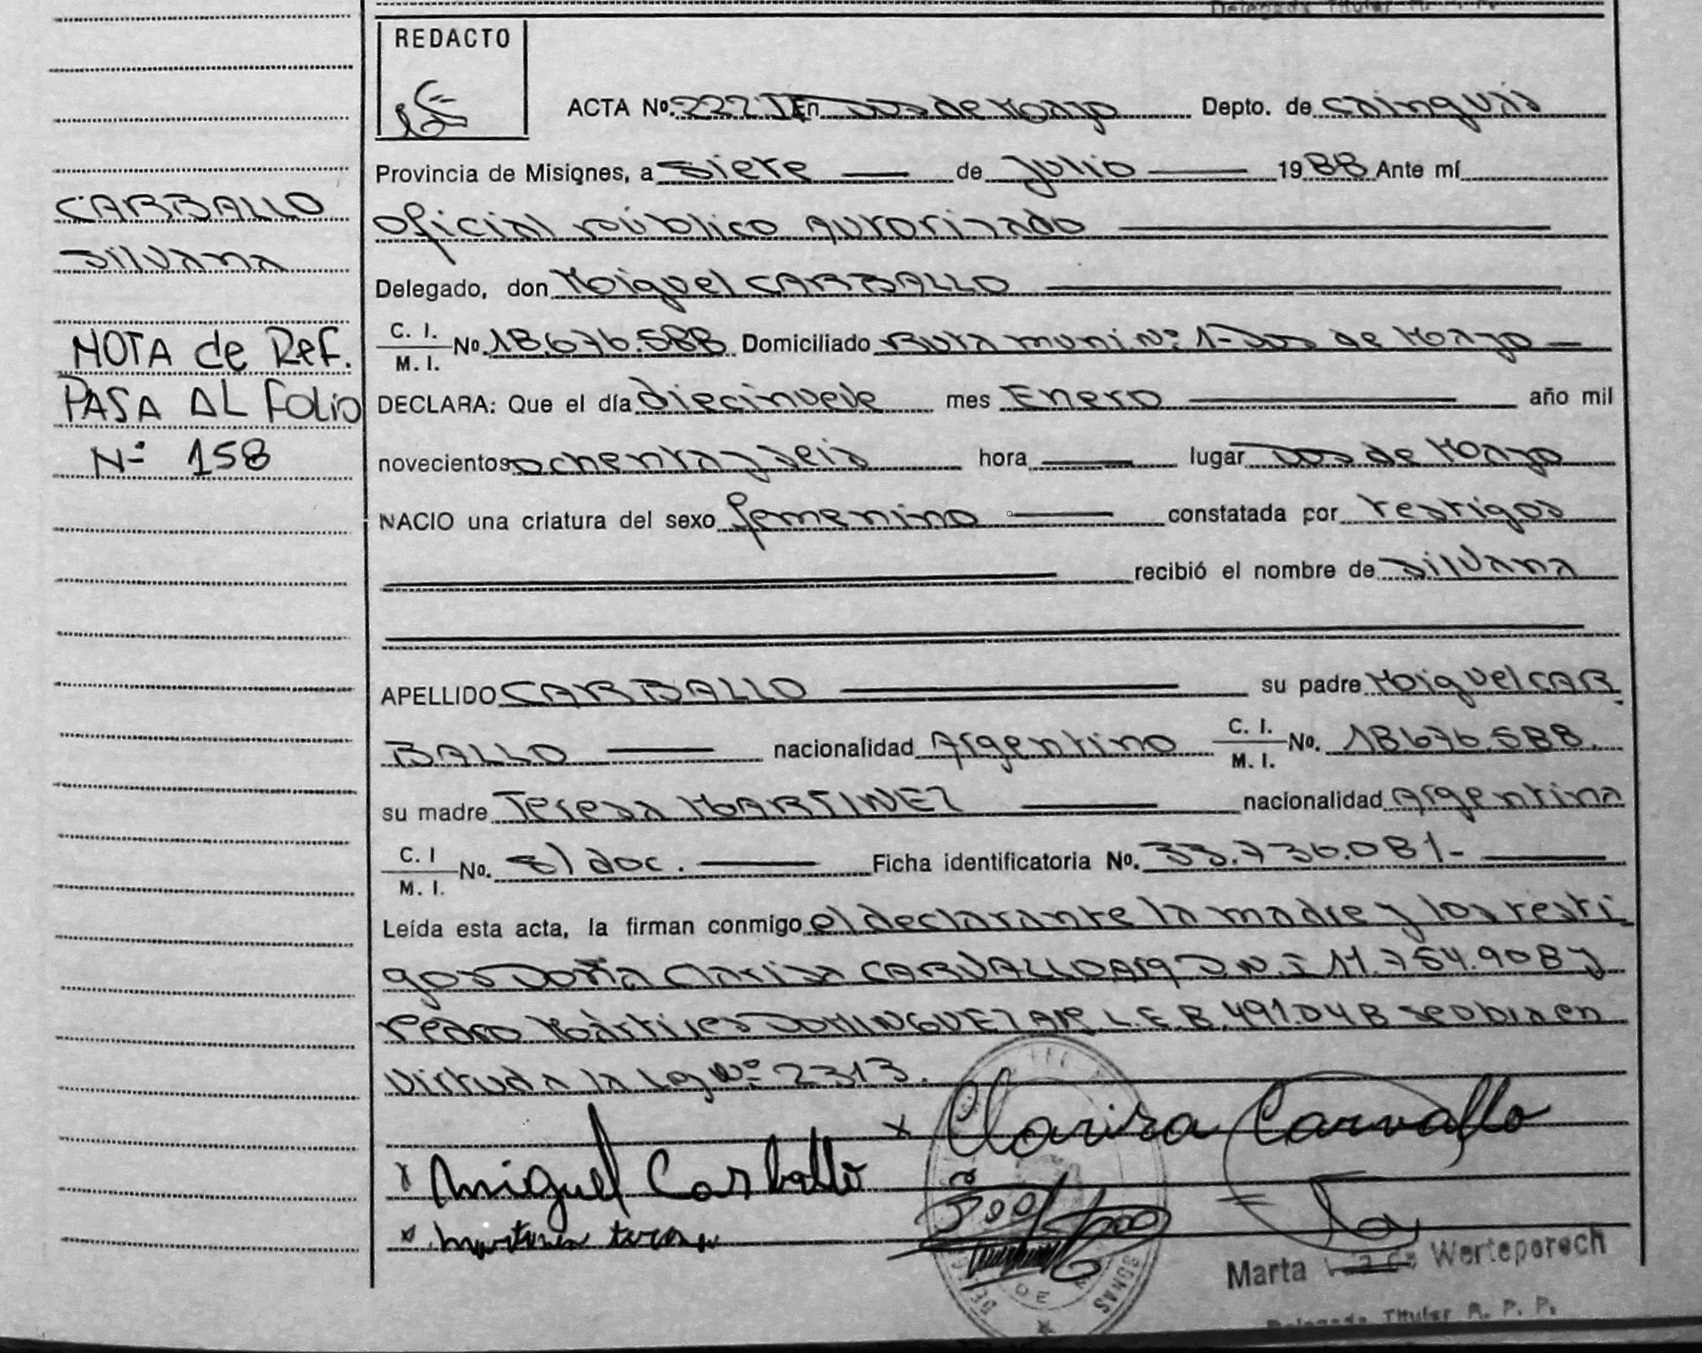 Delegada Titular R. P. P.
REDACTO
ACTA Nº 222 I En Dos de Mayo Depto. de Cainguás
Provincia de Misiones, a siete de Julio 1988 Ante mí
Oficial público Autorizado
CARBALLO
Silvana
Delegado, don Miguel CARBALLO
C. I.
M. I. Nº 18.676.588 Domiciliado Ruta muni Nº 1-Dos de Mayo
NOTA de Ref.
PASA AL Folio
Nº 158
DECLARA: Que el día diecinueve mes Enero año mil
novecientos ochenta y seis hora lugar Dos de Mayo
NACIO una criatura del sexo femenino constatada por testigos
recibió el nombre de Silvana
APELLIDO CARBALLO su padre Miguel CAR
BALLO nacionalidad Argentino C. I.
M. I. No. 18.676.588.
su madre Teresa MARTINEZ nacionalidad Argentina
C. I
M. I. No. s/ doc. Ficha identificatoria No. 33.736.081-
Leída esta acta, la firman conmigo el declarante la madre y los testi
gos Doña Clarisa CARVALLO Arg D.N.I 11.754.908 y
Pedro DOMINGUEZ Arg L.E. 8.491.048 se obra en
virtud a la Ley Nº 2313.
x Clarisa Carvallo
x Miguel Carballo
x Martinez teresa
Marta de Werteporoch
Delegada Titular R. P. P.